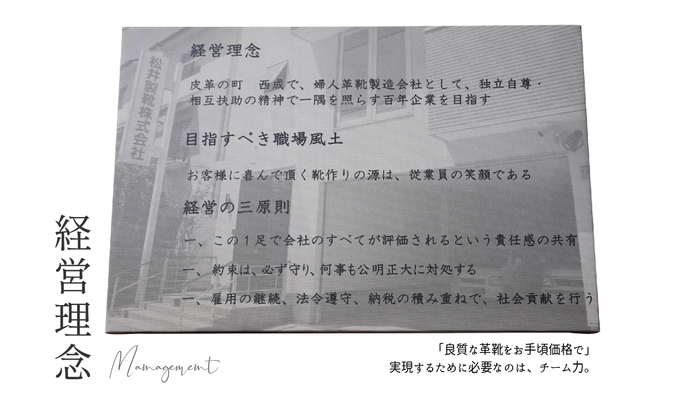 経営理念
皮革の町 西成で、婦人革靴製造会社として、独立自尊・
相互扶助の精神で一隅を照らす百年企業を目指す
目指すべき職場風土
お客様に喜んで頂く靴作りの源は、従業員の笑顔である
経営の三原則
一、この1足で会社のすべてが評価されるという責任感の共有
一、約束は、必ず守り、何事も公明正大に対処する
一、雇用の継続、法令遵守、納税の積み重ねで、社会貢献を行う
松井製靴株式会社
経営理念
Mamagememt
「良質な革靴をお手頃価格で」
実現するために必要なのは、チーム力。